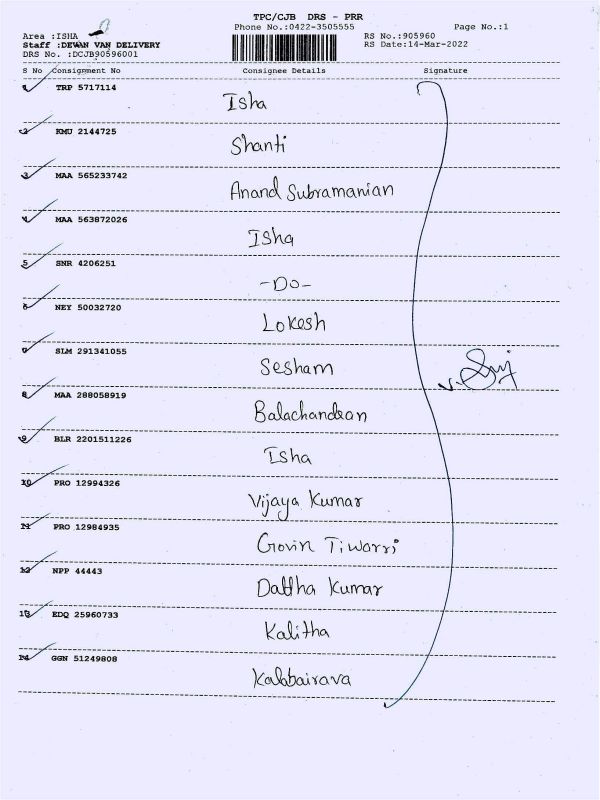 TPC/CJB DRS - PRR
Phone No.:0422-3505555 Page No.:1
Area :ISHA RS No.:905960
Staff :DEWAN VAN DELIVERY RS Date:14-Mar-2022
DRS No. :DCJB90596001
S No Consignment No Consignee Details Signature
1 TRP 5717114
Isha
2 KMU 2144725
Shanti
3 MAA 565233742
Anand Subramanian
4 MAA 563872026
Isha
5 SNR 4206251
-Do-
6 NEY 50032720
Lokesh
7 SLM 291341055
Sesham
8 MAA 288058919
Balachandran
9 BLR 2201511226
Isha
10 PRO 12994326
Vijaya Kumar
11 PRO 12984935
Govin Tiworri
12 NPP 44443
Dattha Kumar
13 EDQ 25960733
Kalitha
14 GGN 51249808
Kalabairava